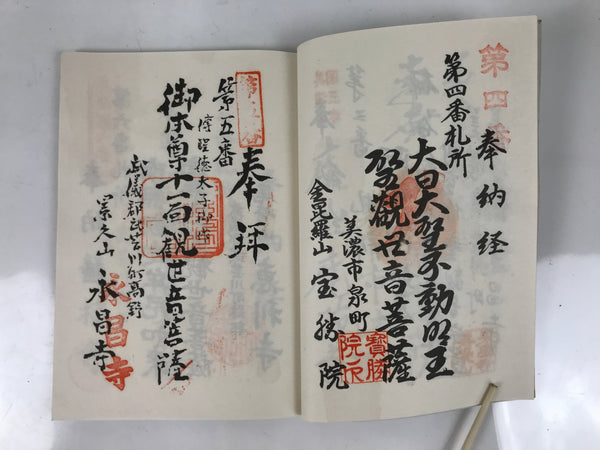 第四番
奉納経
第四番札所
大日大聖不動明王
聖観世音菩薩
美濃市泉町
金毘羅山 宝勝院
寶勝院印
奉拝
第五番
傳聖徳太子御作
御本尊十一面観世音菩薩
武儀郡武芸川町高野
永昌寺
永昌寺